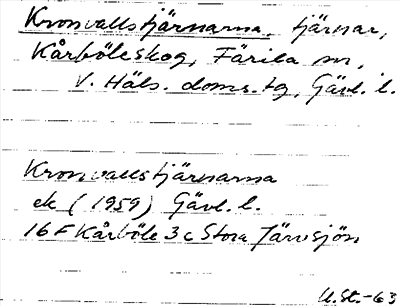 Kronvallstjärnarna, tjärnar,
Kårböleskog, Färila sn,
V. Häls. doms. tg, Gävl. l.
Kronvallstjärnarna
ek (1959) Gävl. l.
16F Kårböle 3c Stora Järvsjön
U.St.-63